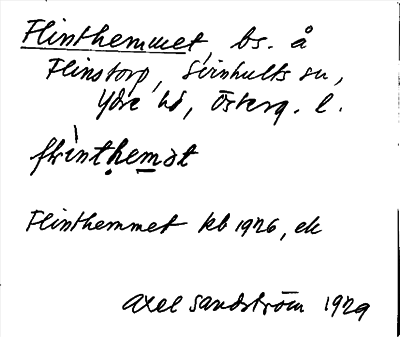 Flinthemmet, bs. å
Flinstorp, Svinhults sn,
Ydre hd, Österg. l.
flìnthemət
Flinthemmet kb 1926, ek
Axel Sandström 1929